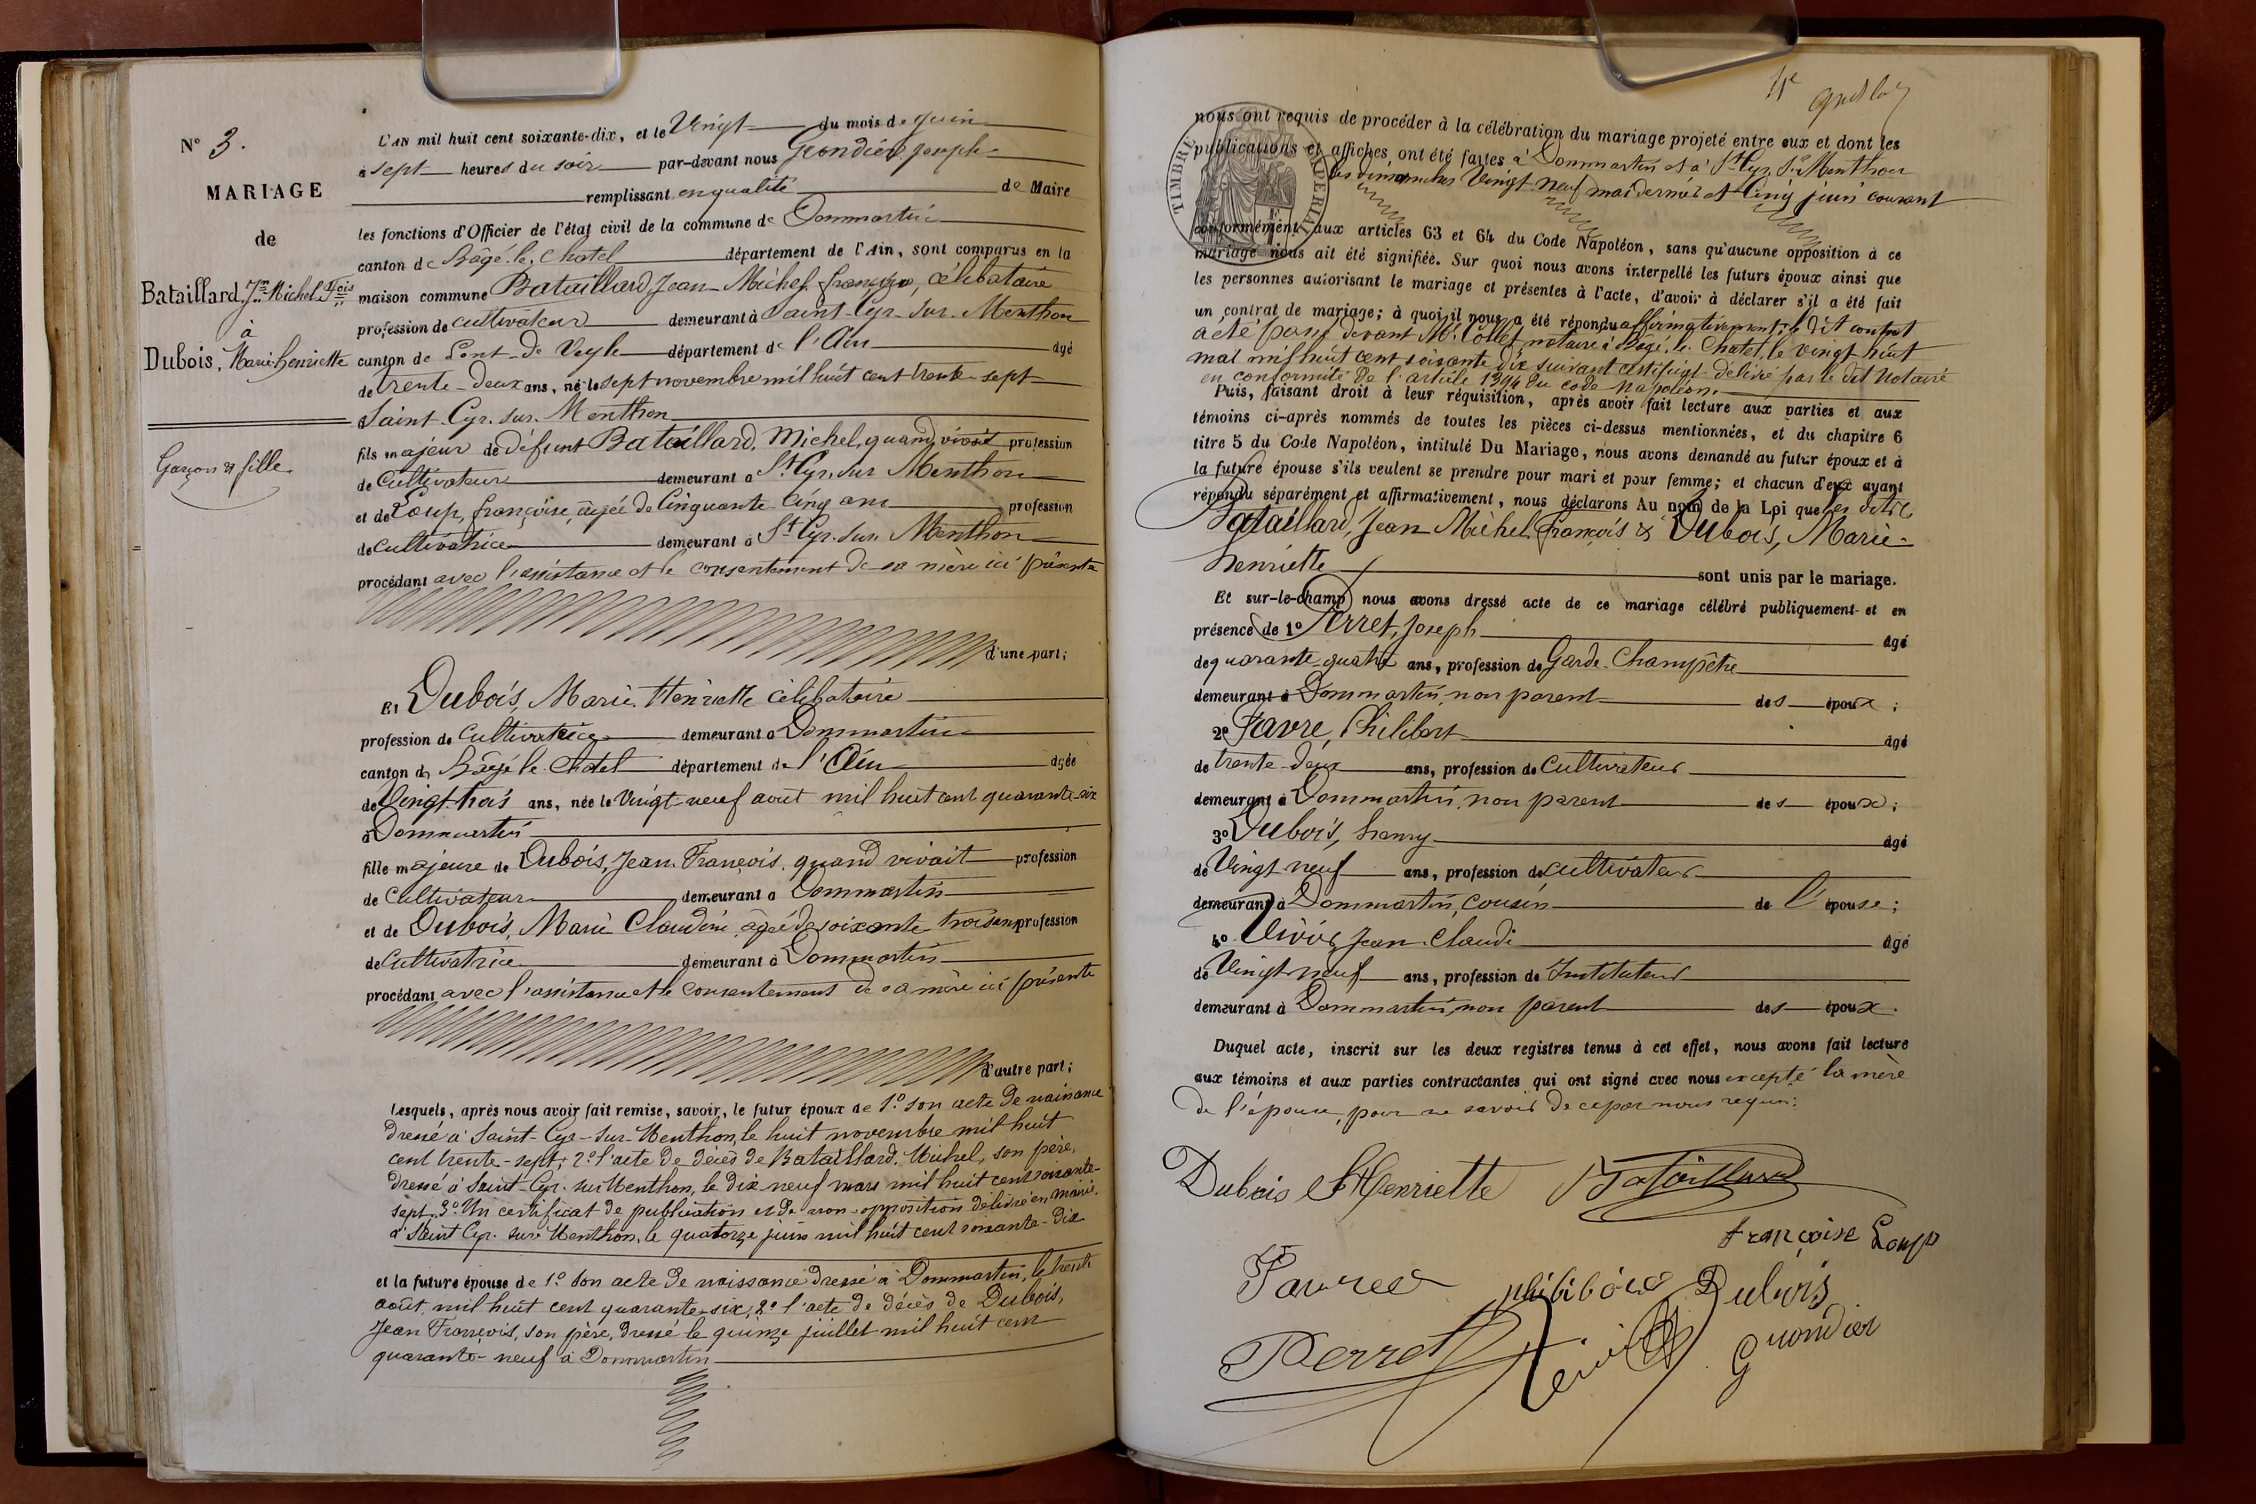 N° 3.
MARIAGE
de
Bataillard, Jn Michel Fçois
à
Dubois, Marie henriette
Garçon et fille
L'AN mil huit cent soixante-dix, et le Vingt du mois de Juin
à sept heures du soir par-devant nous Grondier Joseph
remplissant en qualité de Maire
les fonctions d'Officier de l'état civil de la commune de Dommartin
canton de Bâgé-le-Chatel département de l'Ain, sont comparus en la
maison commune Bataillard, Jean Michel françois, célibataire
profession de cultivateur demeurant à Saint-Cyr-sur-Menthon
canton de Pont-de-Veyle département de l'Ain âgé
de trente-deux ans, né le sept novembre mil huit cent trente-sept
à Saint-Cyr-sur-Menthon
fils majeur de défunt Bataillard, Michel, quand vivait profession
de cultivateur demeurant à St Cyr-sur Menthon
et de Loup, françoise, âgée de Cinquante Cinq ans profession
de cultivatrice demeurant à St Cyr-sur Menthon
procédant avec l'assistance et le consentement de sa mère ici présente
d'une part;
Et Dubois, Marie Henriette célibataire
profession de cultivatrice demeurant à Dommartin
canton de Bâgé-le-Chatel département de l'Ain âgée
de Vingt trois ans, née le Vingt-neuf août mil huit cent quarante-six
à Dommartin
fille majeure de Dubois, Jean François, quand vivait profession
de cultivateur demeurant à Dommartin
et de Dubois, Marie Claudine, âgée de soixante trois ans profession
de cultivatrice demeurant à Dommartin
procédant avec l'assistance et le consentement de sa mère ici présente
d'autre part;
Lesquels, après nous avoir fait remise, savoir, le futur époux de 1° son acte de naissance
dressé à Saint-Cyr-sur-Menthon, le huit novembre mil huit
cent trente-sept; 2° l'acte de décès de Bataillard, Michel, son père,
dressé à Saint-Cyr-sur Menthon, le dix neuf mars mil huit cent soixante-
sept, 3° Un certificat de publication et de non-opposition délivré en mairie
à Saint Cyr-sur Menthon, le quatorze juin mil huit cent soixante-dix
et la future épouse de 1° son acte de naissance dressé à Dommartin, le trente
août, mil huit cent quarante-six; 2° l'acte de décès de Dubois,
Jean François, son père, dressé le quinze juillet mil huit cent
quarante-neuf à Dommartin
nous ont requis de procéder à la célébration du mariage projeté entre eux et dont les
publications et affiches ont été faites à Dommartin et à St Cyr-sr-Menthon
les dimanches Vingt-neuf mai dernier et Cinq juin courant
TIMBRE IMPERIAL
conformément aux articles 63 et 64 du Code Napoléon, sans qu'aucune opposition à ce
mariage nous ait été signifiée. Sur quoi nous avons interpellé les futurs époux ainsi que
les personnes autorisant le mariage et présentes à l'acte, d'avoir à déclarer s'il a été fait
un contrat de mariage; à quoi il nous a été répondu affirmativement; le dit contrat
a été passé devant Me Collet, notaire à Bâgé-le-Chatel, le vingt huit
mai mil huit cent soixante dix suivant certificat délivré par le dit Notaire
en conformité de l'article 1394 du code Napoléon.
Puis, faisant droit à leur réquisition, après avoir fait lecture aux parties et aux
témoins ci-après nommés de toutes les pièces ci-dessus mentionnées, et du chapitre 6
titre 5 du Code Napoléon, intitulé Du Mariage, nous avons demandé au futur époux et à
la future épouse s'ils veulent se prendre pour mari et pour femme; et chacun d'eux ayant
répondu séparément et affirmativement, nous déclarons Au nom de la Loi que les dits
Bataillard, Jean Michel françois & Dubois, Marie
henriette sont unis par le mariage.
Et sur-le-champ nous avons dressé acte de ce mariage célébré publiquement et en
présence de 1° Perret, Joseph âgé
de quarante-quatre ans, profession de Garde-Champêtre
demeurant à Dommartin, non parent des époux;
2° Favre, Philibert âgé
de trente-deux ans, profession de cultivateur
demeurant à Dommartin, non parent des époux;
3° Dubois, henry âgé
de Vingt neuf ans, profession de cultivateur
demeurant à Dommartin, cousin de l'épouse;
4° Jean-Claude âgé
de Vingt-neuf ans, profession de Instituteur
demeurant à Dommartin, non parent des époux.
Duquel acte, inscrit sur les deux registres tenus à cet effet, nous avons fait lecture
aux témoins et aux parties contractantes qui ont signé avec nous excepté la mère
de l'épouse, pour ne savoir de ce par nous requise.
Dubois Henriette Bataillard
françoise Loup
Favre philibert Dubois
Perret Grondier